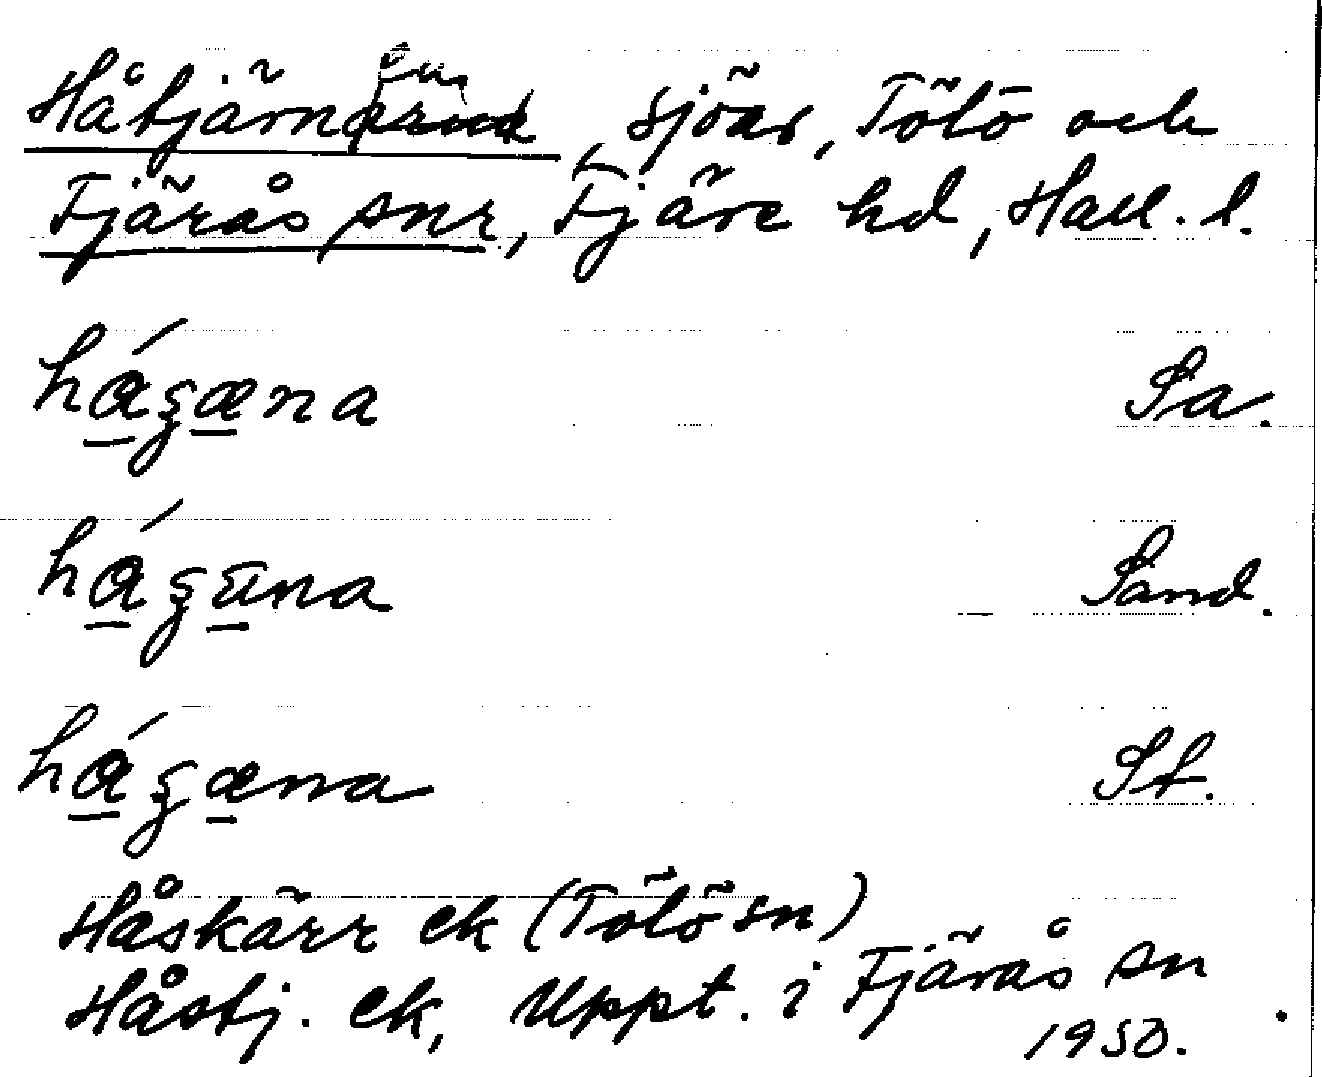 Håtjärnarna, sjöar, Tölö och
Fjärås snr, Fjäre hd, Hall. l.
hágæna Sa.
hágäna Sand.
hágæna St.
Håskärr ek (Tölö sn)
Håstj. ek, Uppt. i Fjärås sn
1950.